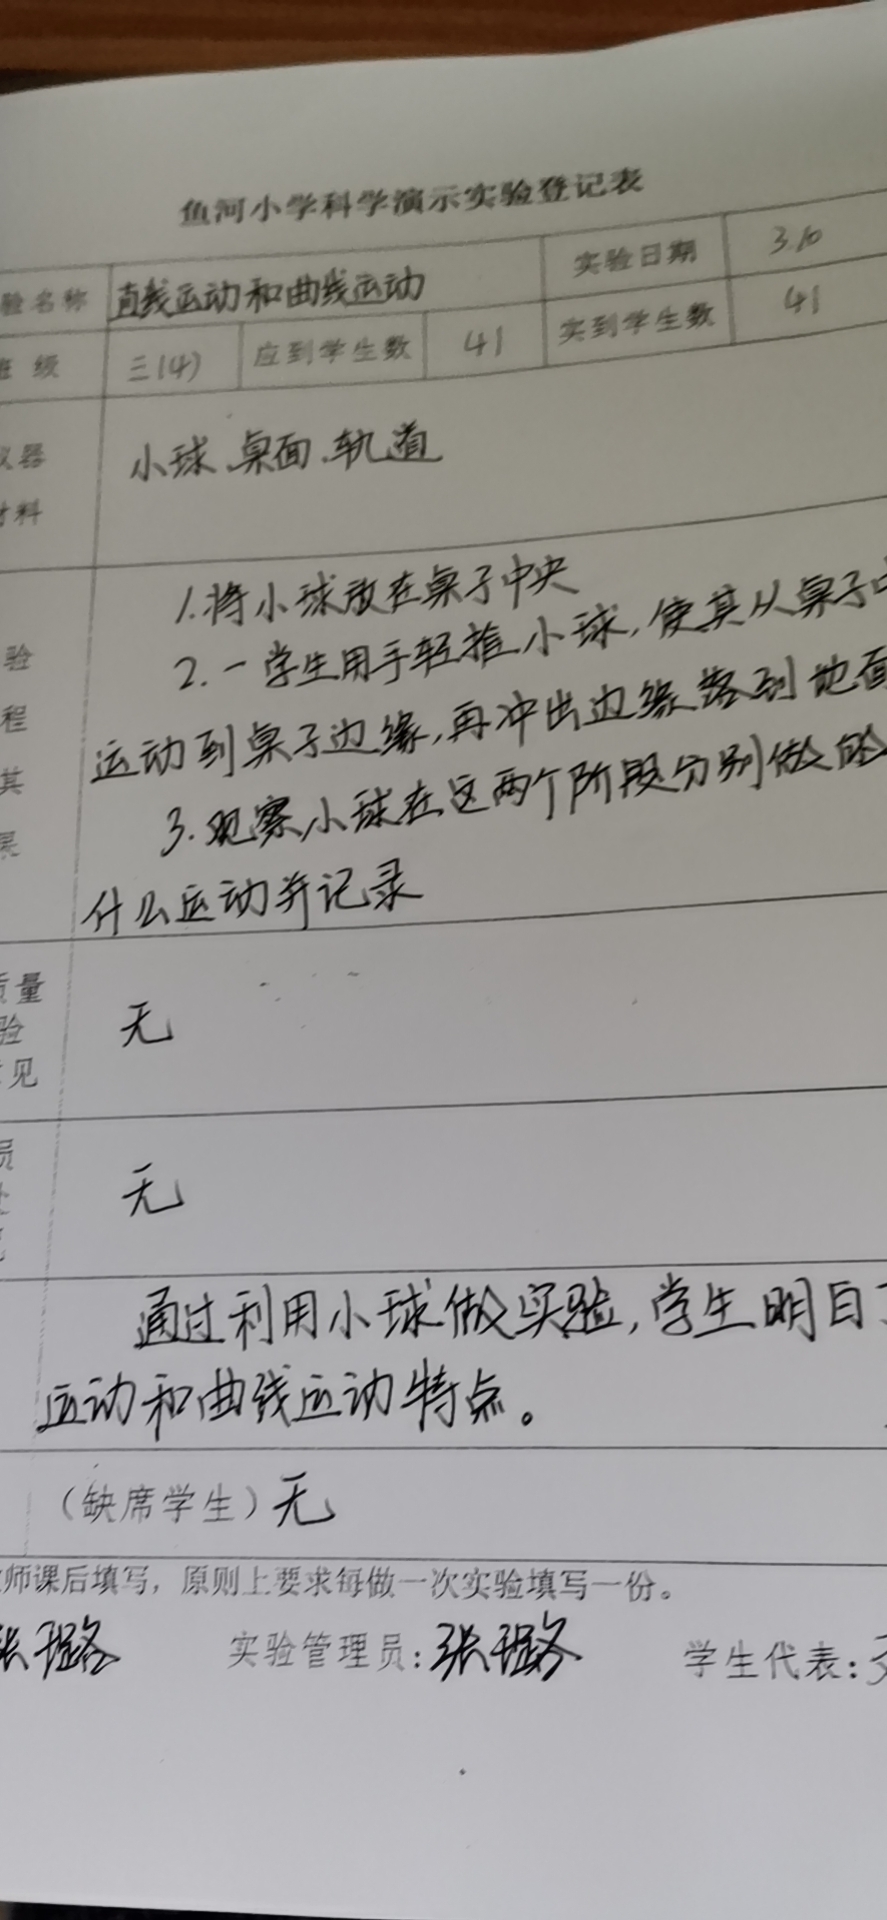 鱼河小学科学演示实验登记表
验名称 直线运动和曲线运动 实验日期 3.10
班 级 三(4) 应到学生数 41 实到学生数 41
仪器 小球、桌面、轨道
材料
1.将小球放在桌子中央
验 2.一学生用手轻推小球,使其从桌子中
程 运动到桌子边缘,再冲出边缘落到地面
其 3.观察小球在这两个阶段分别做的
什么运动并记录
质量
验 无
意见
员
无
通过利用小球做实验,学生明白了
运动和曲线运动特点。
(缺席学生)无
师课后填写,原则上要求每做一次实验填写一份。
张璐 实验管理员:张璐 学生代表: